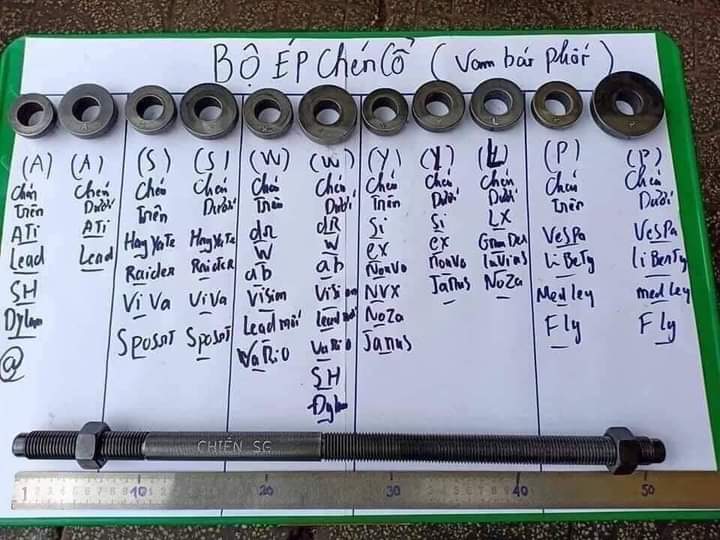 BỘ ÉP Chén Cổ (Vam bát phốt)
(A) (A) (S) (S) (W) (W) (Y) (Y) (L) (P) (P)
Chén Trên
ATi
Lead
SH
Dylan
@
Chén Dưới
ATi
Lead
Chén Trên
HayYaTe
Raider
ViVa
Sposot
Chén Dưới
HayYaTe
Raider
ViVa
Sposot
Chén Trên
dR
W
ab
Vision
Lead mới
VaRiO
Chén Dưới
dR
W
ab
Vision
Lead mới
VaRiO
SH
Dylan
Chén Trên
Si
ex
NouVo
NVX
NoZa
Janus
Chén Dưới
Si
ex
NouVo
Janus
Chén Dưới
LX
NoZa
Chén Trên
VesPa
LiBeTy
Medley
Fly
Chén Dưới
VesPa
LiBerTy
medley
Fly
CHIẾN SG
1 10 20 30 40 50